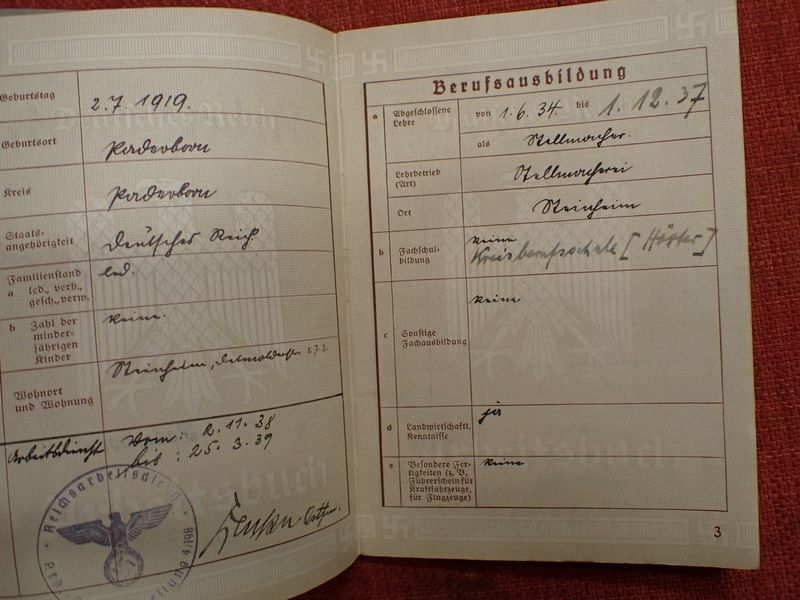 Geburtstag
2.7.1919.
Geburtsort
Paderborn
Kreis
Paderborn
Staats-
angehörigkeit
Deutsches Reich.
Familienstand
a led., verh.,
gesch., verw.
led.
b Zahl der
minder-
jährigen
Kinder
keine.
Wohnort
und Wohnung
Steinheim,
Arbeitsdienst
vom: 2.11.38
bis: 25.3.39
Reichsarbeitsdienst
Abteilung 4/198
Arbeitsbuch
Deutsches Reich
Berufsausbildung
a Abgeschlossene
Lehre
von 1.6.34. bis 1.12.37
als Stellmacher.
Lehrbetrieb
(Art)
Stellmacherei
Ort
Steinheim
b Fachschul-
bildung
keine
Kreisberufsschule [Höxter]
c Sonstige
Fachausbildung
keine
d Landwirtschaftl.
Kenntnisse
ja
e Besondere Fer-
tigkeiten (z. B.
Führerschein für
Kraftfahrzeuge,
für Flugzeuge)
keine
3